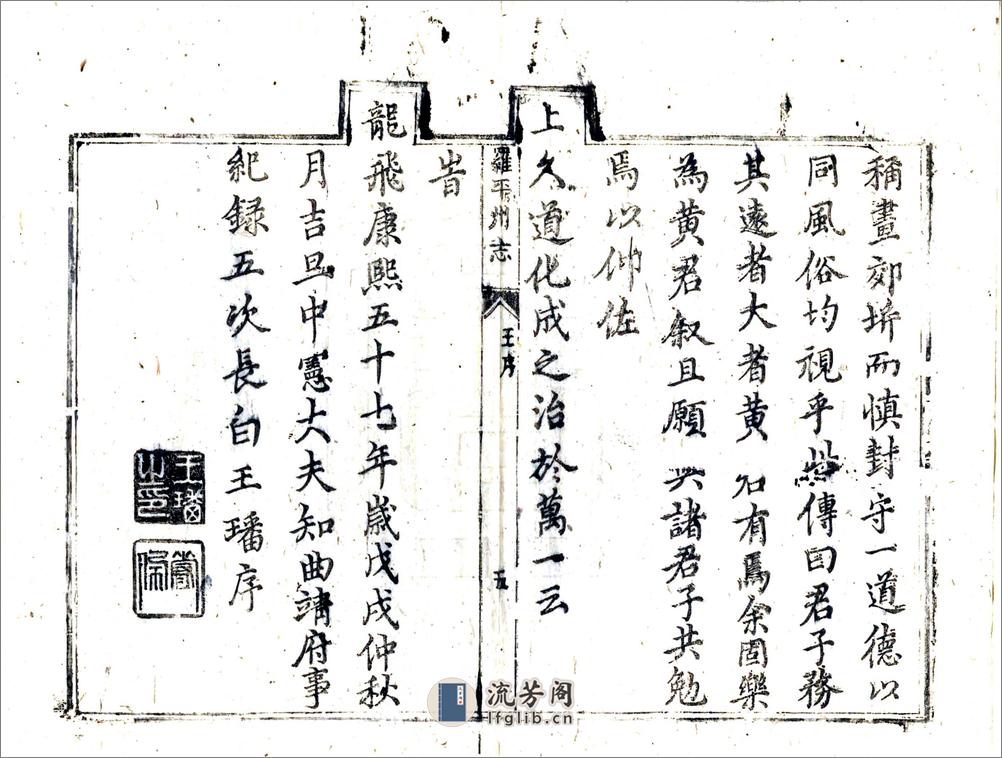 稱畫郊圻而慎封守一道德以
同風俗均視乎此傳曰君子務
其遠者大者黄君有焉余固樂
為黄君叙且願與諸君子共勉
焉以仰佐
上久道化成之治於萬一云
羅平州志
王序
五
旹
龍飛康熙五十七年歲戊戌仲秋
月吉旦中憲大夫知曲靖府事
紀録五次長白王璠序
王璠之印
流芳阁
lfglib.cn